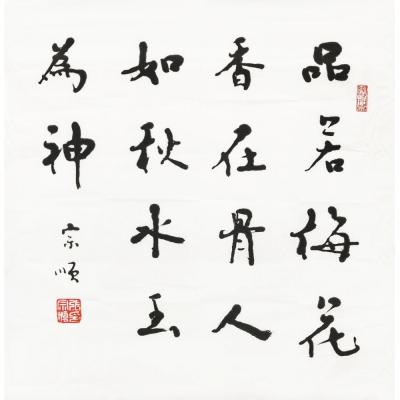 品若梅花
香在骨人
如秋水玉
為神
宗順